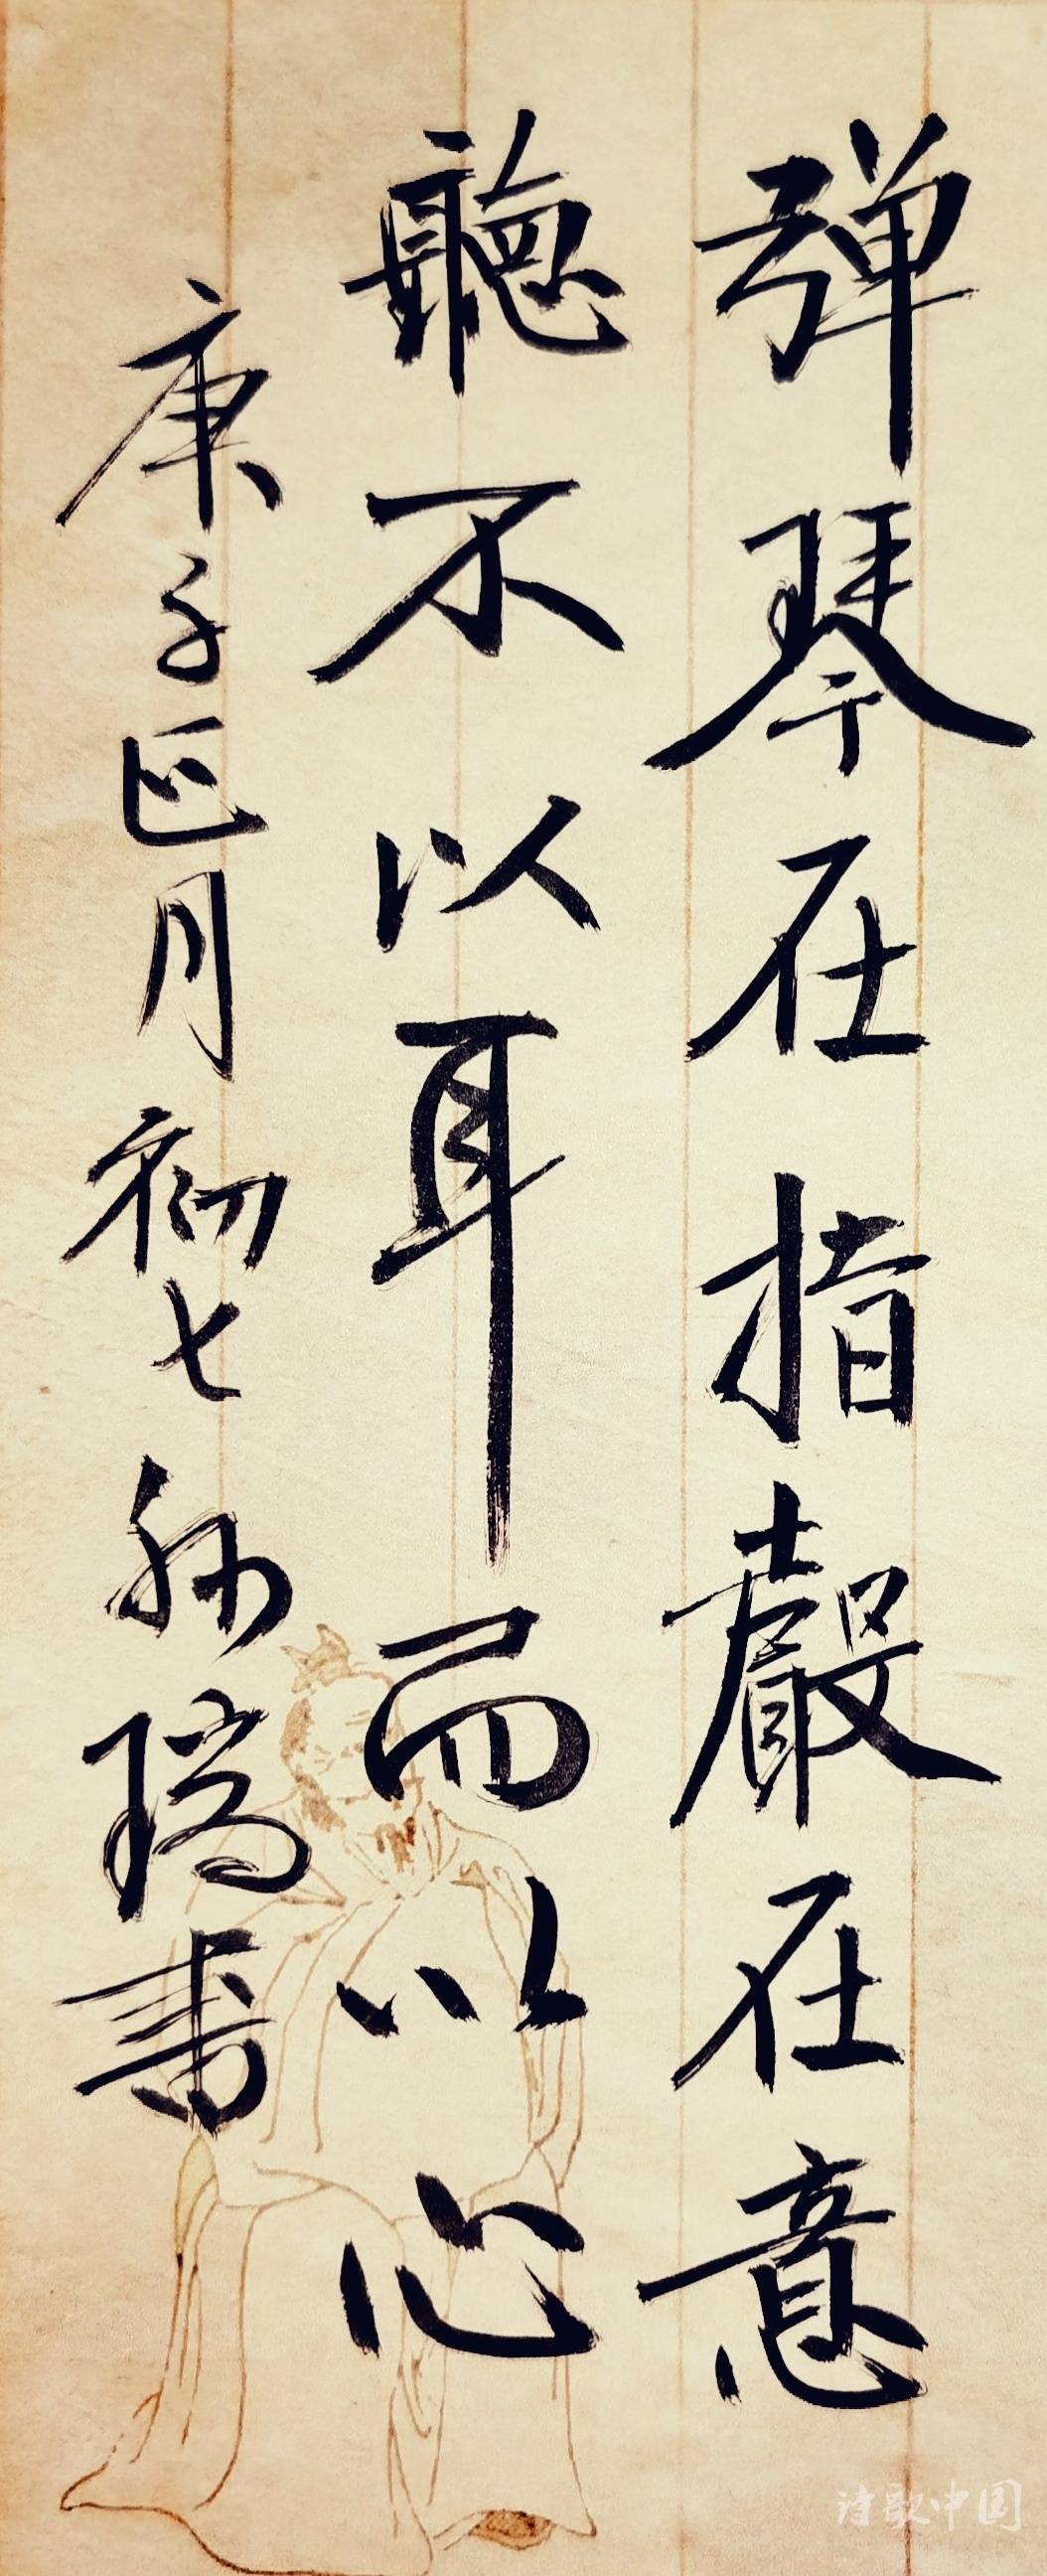 弹琴在指聲在意
聽不以耳而以心
庚子正月初七孙瑞書
诗歌中国